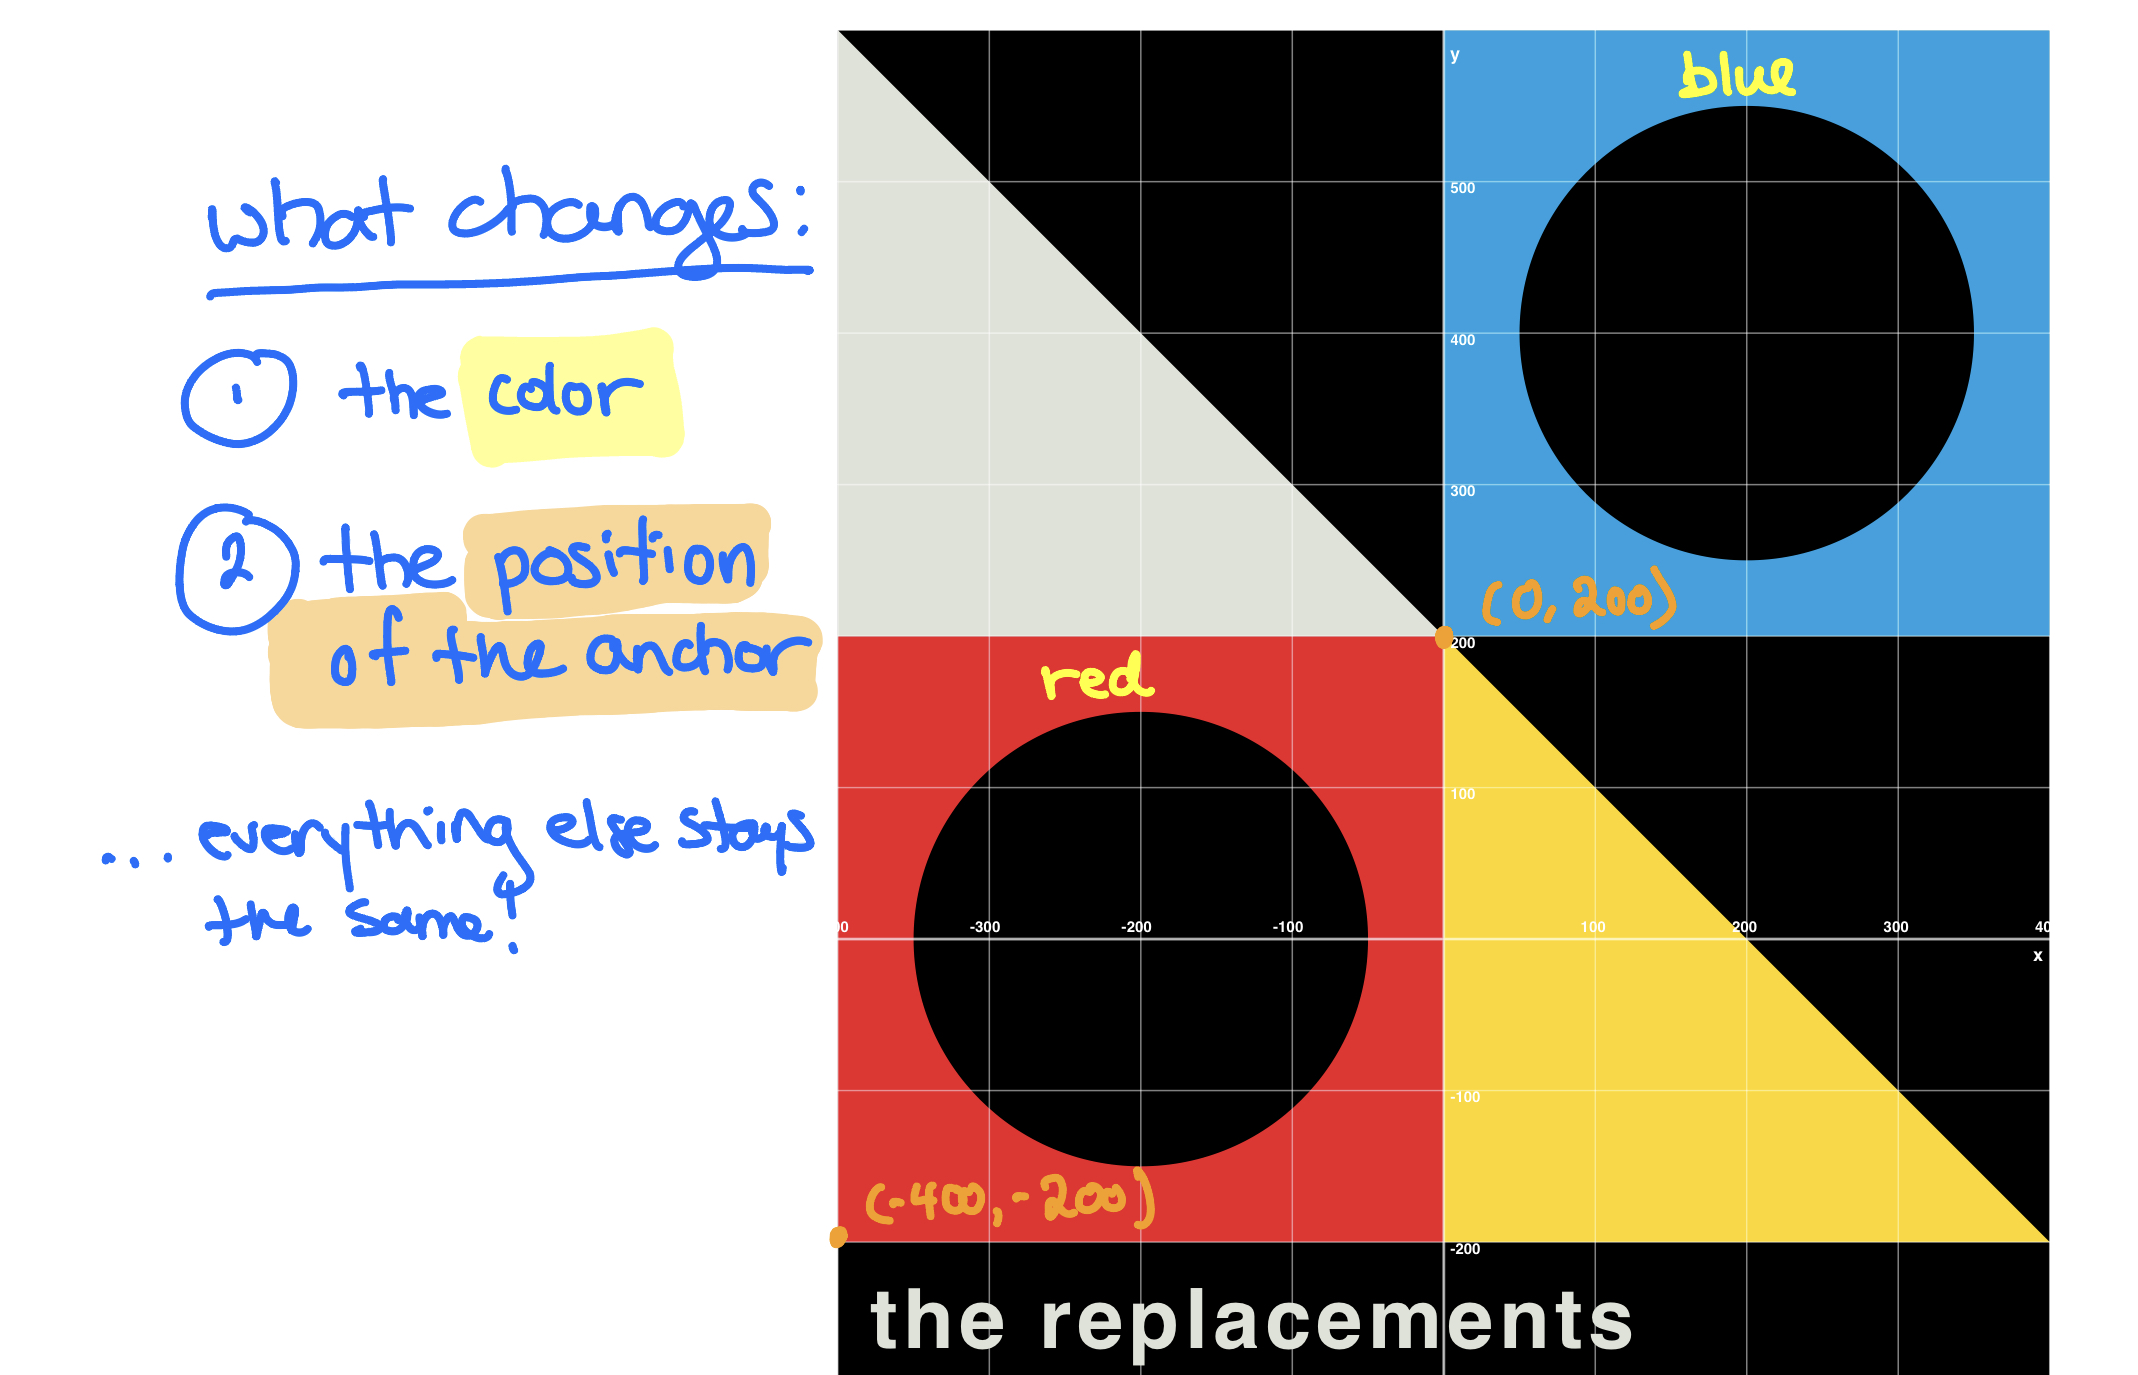 what changes:
1 the color
2 the position
of the anchor
... everything else stays
the same!
y
blue
500
400
300
(0, 200)
200
red
100
00 -300 -200 -100 100 200 300 40
x
-100
(-400, -200)
-200
the replacements